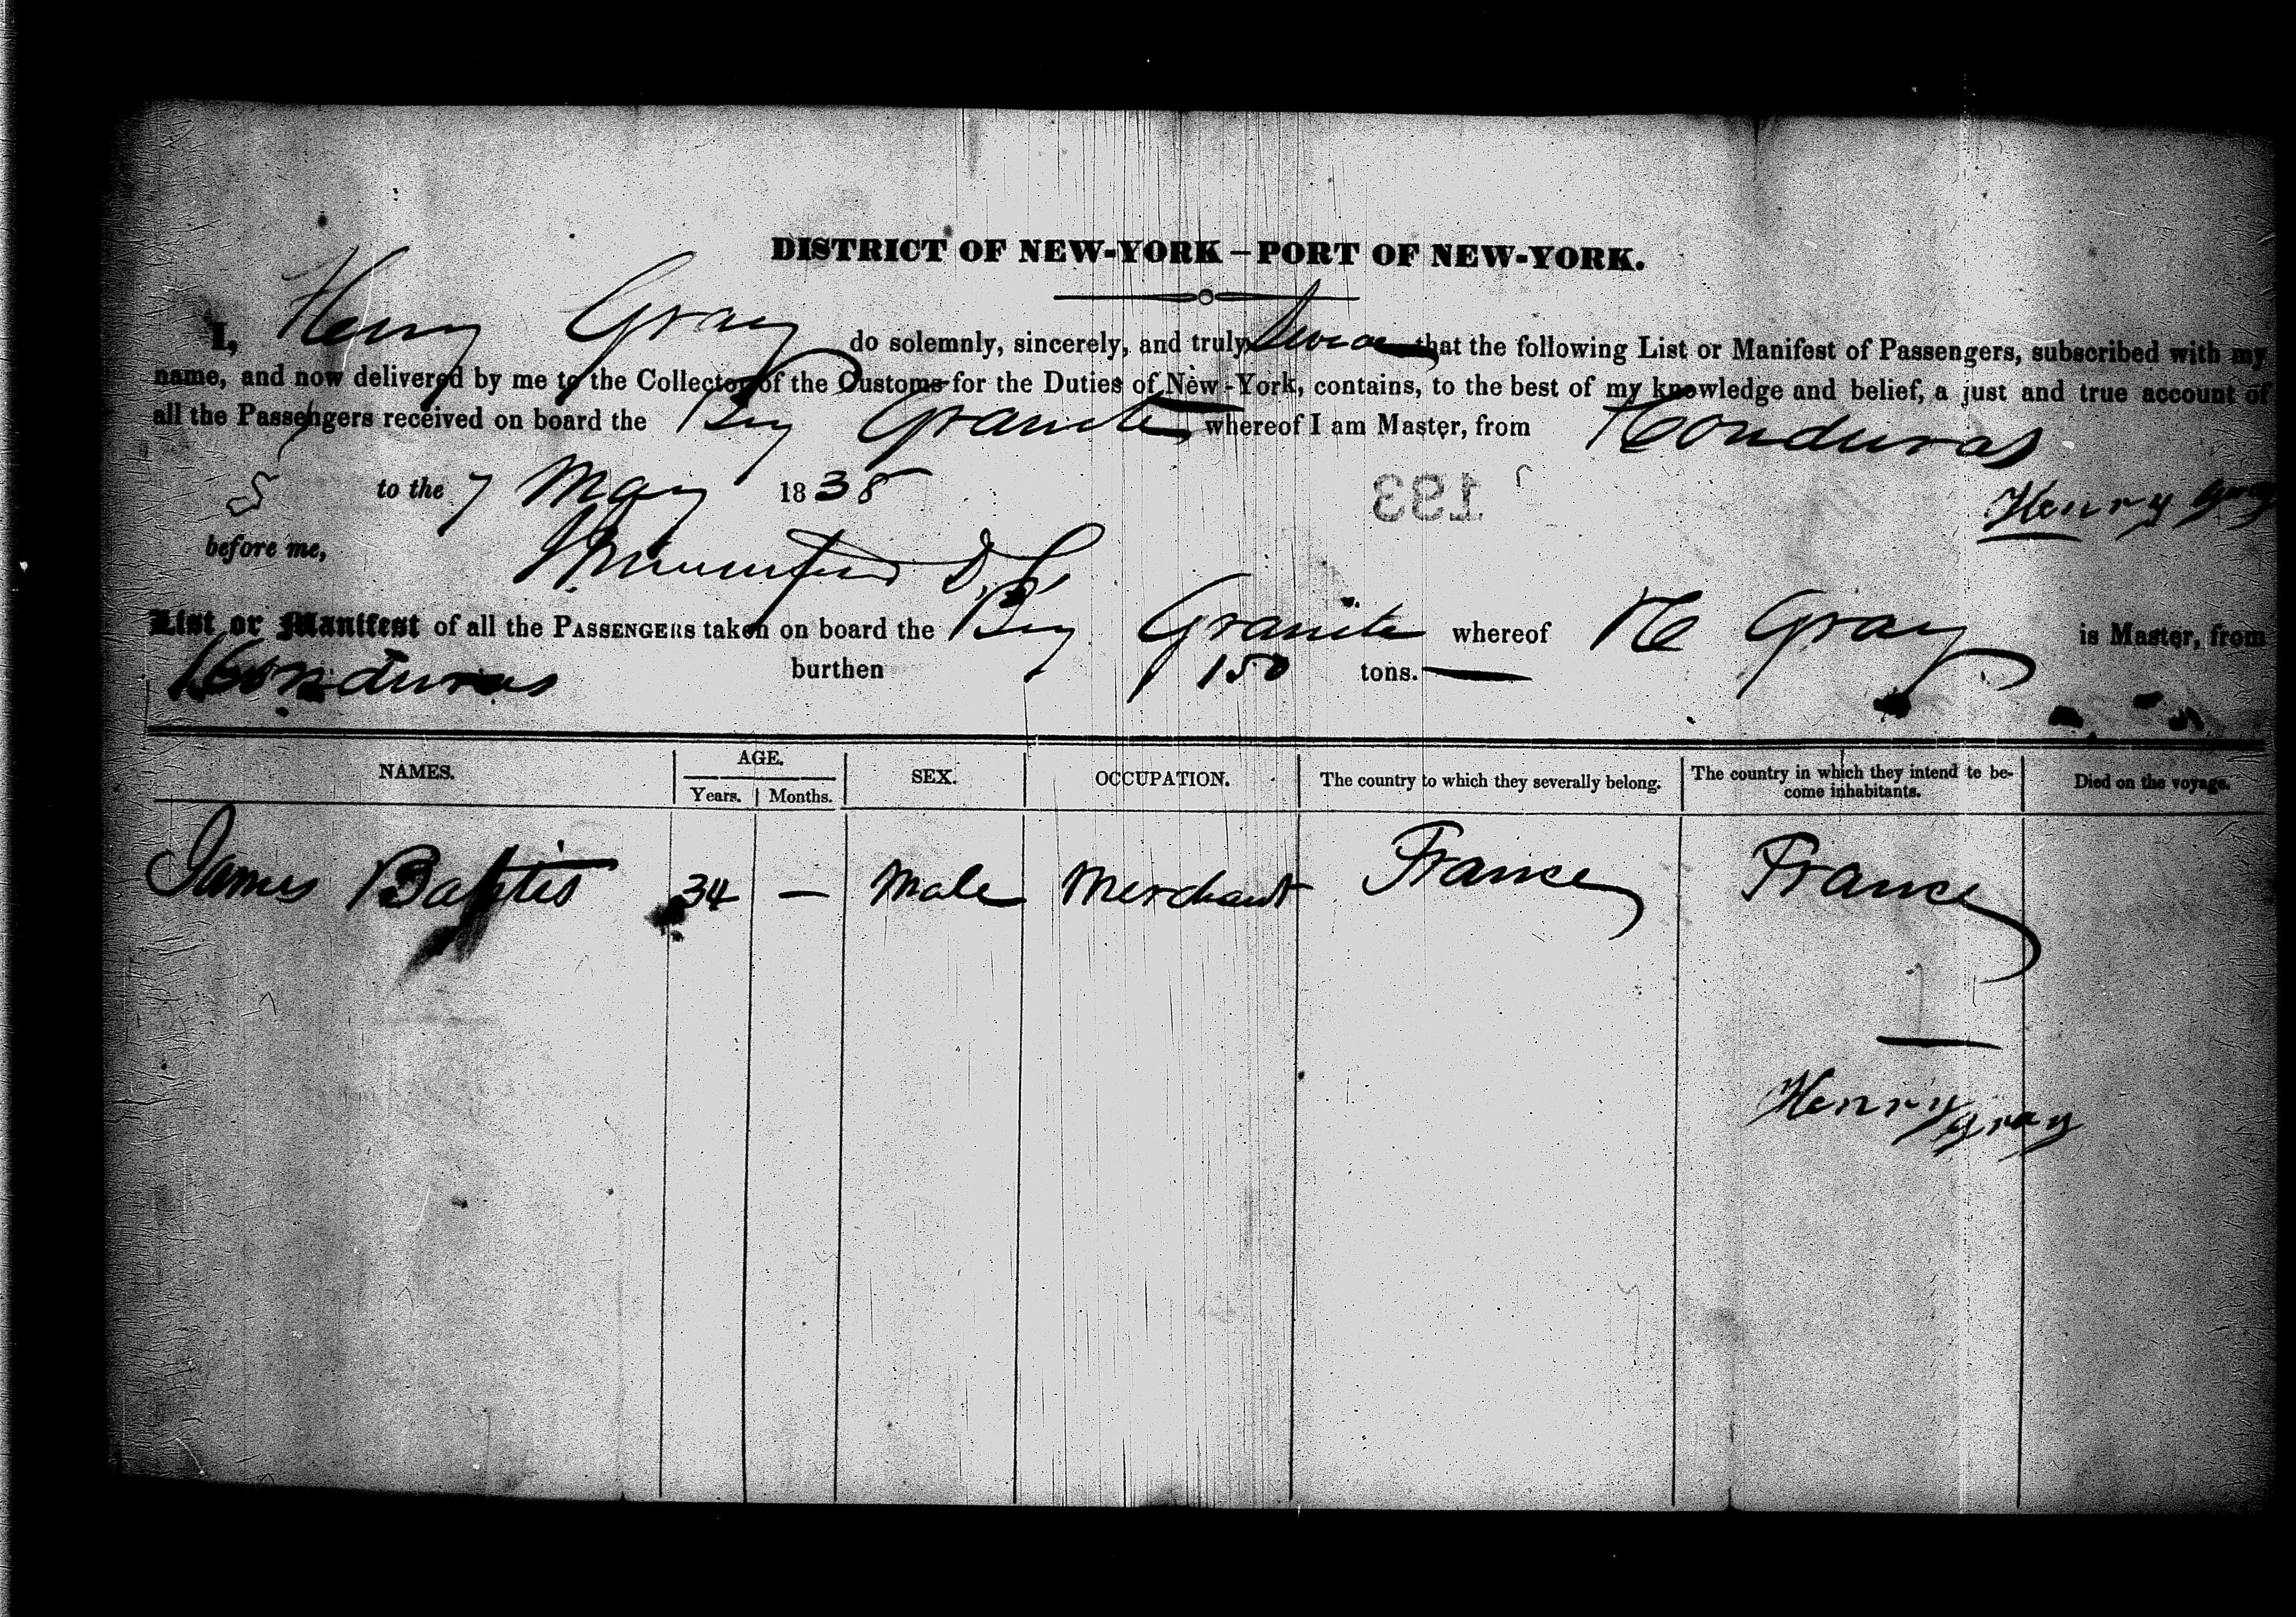 DISTRICT OF NEW-YORK – PORT OF NEW-YORK.
I, Henry Gray do solemnly, sincerely, and truly swear that the following List or Manifest of Passengers, subscribed with my
name, and now delivered by me to the Collector of the Customs for the Duties of New-York, contains, to the best of my knowledge and belief, a just and true account of
all the Passengers received on board the Brig Granite whereof I am Master, from Honduras
S to the 7 May 1838
Henry Gray
193
before me,
List or Manifest of all the PASSENGERS taken on board the Brig Granite whereof H Gray is Master, from
Honduras burthen 150 tons.
NAMES. AGE. SEX. OCCUPATION. The country to which they severally belong. The country in which they intend to be- come inhabitants. Died on the voyage.
Years. Months.
James Baptis 34 — Male Merchant France France
Henry Gray